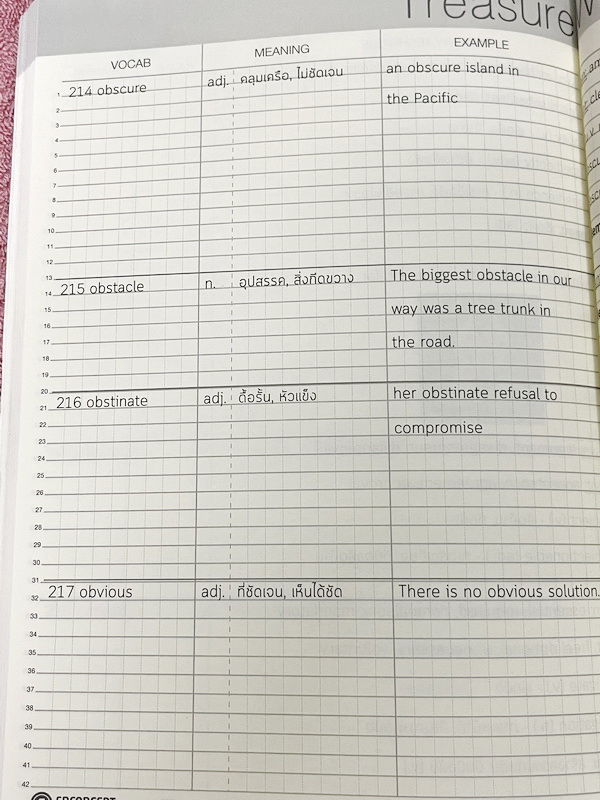 Treasure
VOCAB MEANING EXAMPLE
1 214 obscure adj. คลุมเครือ, ไม่ชัดเจน an obscure island in
2 the Pacific
3
4
5
6
7
8
9
10
11
12
13
14 215 obstacle n. อุปสรรค, สิ่งกีดขวาง The biggest obstacle in our
15 way was a tree trunk in
16
17 the road.
18
19
20
21 216 obstinate adj. ดื้อรั้น, หัวแข็ง her obstinate refusal to
22 compromise
23
24
25
26
27
28
29
30
31
32 217 obvious adj. ที่ชัดเจน, เห็นได้ชัด There is no obvious solution.
33
34
35
36
37
38
39
40
41
42